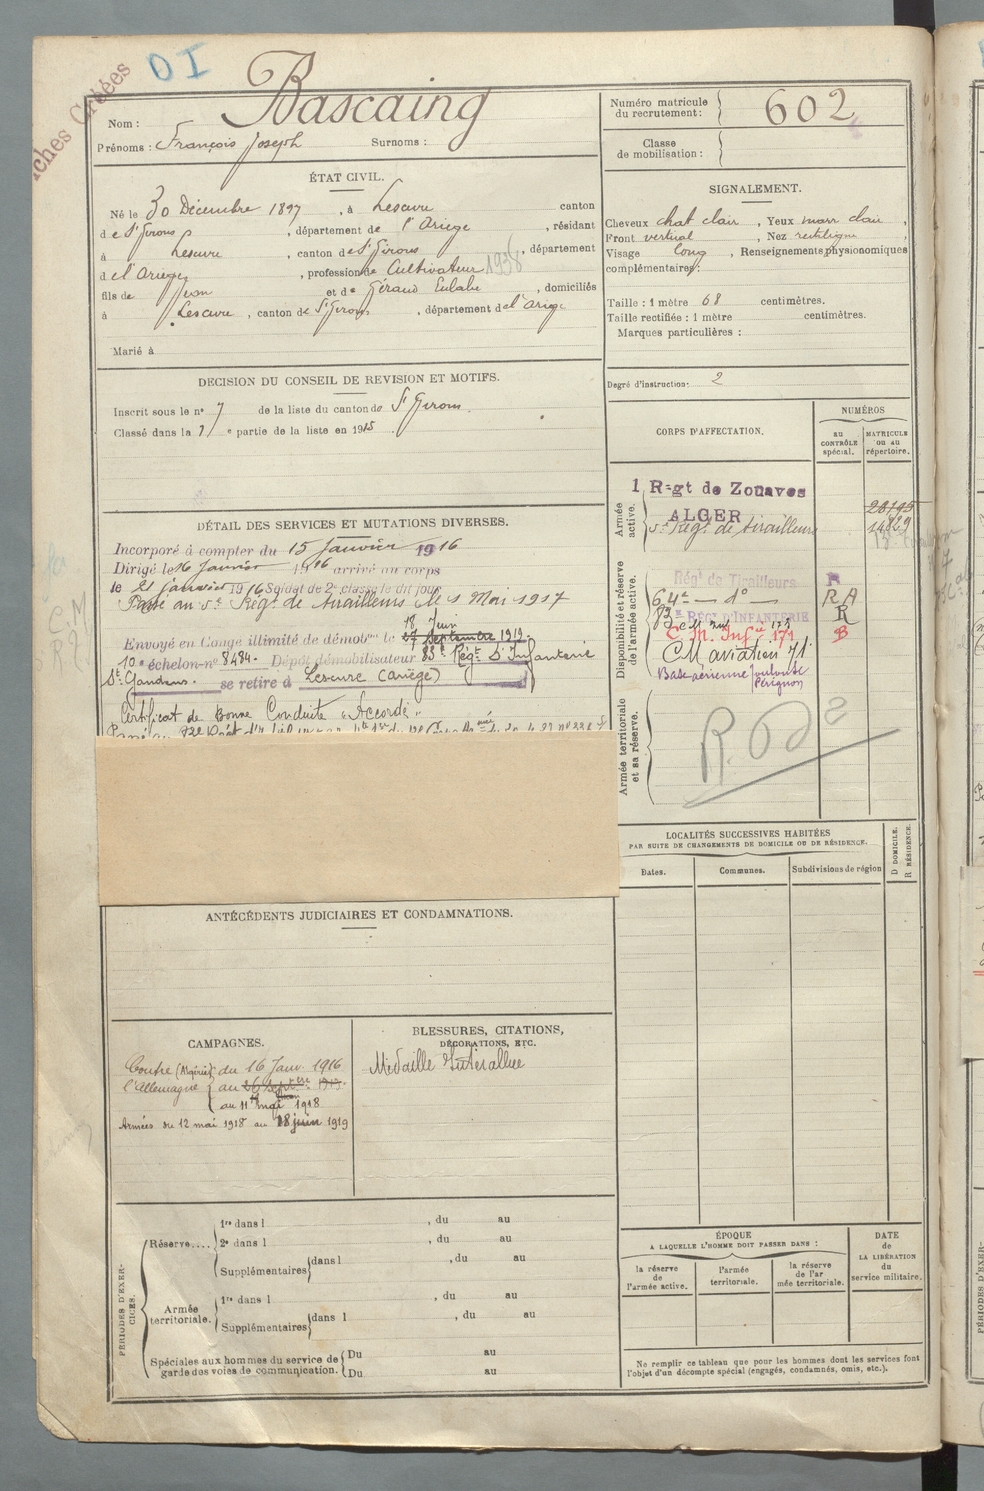 Fiches Créées
DI
Nom : Bascaing
Prénoms : François Joseph Surnoms :
Numéro matricule du recrutement : 602
Classe de mobilisation :
ÉTAT CIVIL.
Né le 30 Décembre 1897, à Lescure canton
de St Girons, département de l'Ariège, résidant
à Lescure, canton de St Girons, département
de l'Ariège, profession de Cultivateur 1938
fils de Jean et de Géraud Eulalie, domiciliés
à Lescure, canton de St Girons, département de l'Ariège
Marié à
SIGNALEMENT.
Cheveux chat clair, Yeux marr clair,
Front vertical, Nez rectiligne
Visage long, Renseignements physionomiques
complémentaires :
Taille : 1 mètre 68 centimètres.
Taille rectifiée : 1 mètre centimètres.
Marques particulières :
Degré d'instruction : 2
DECISION DU CONSEIL DE REVISION ET MOTIFS.
Inscrit sous le n° 7 de la liste du canton de St Girons.
Classé dans la 1e partie de la liste en 1915
CORPS D'AFFECTATION.
NUMÉROS
au CONTRÔLE spécial.
MATRICULE ou au répertoire.
Armée active.
1 R-gt de Zouaves
ALGER
5e Régt de tirailleurs
28195
14829
Disponibilité et réserve de l'armée active.
Régt de Tirailleurs R
64e — do — RA
83e RÉGt D'INFANTERIE R
C. M. Infie 171 B
CM aviation 71
Base aérienne Toulouse
Pérignon
Armée territoriale et sa réserve.
DÉTAIL DES SERVICES ET MUTATIONS DIVERSES.
Incorporé à compter du 15 Janvier 1916
Dirigé le 16 Janvier 1916 arrivé au corps
le 21 janvier 1916 Soldat de 2e classe le dit jour
Passé au 5e Régt de tirailleurs le 1 Mai 1917
18 Juin
Envoyé en Congé illimité de démobon le 27 Septembre 1919.
10e échelon n° 8484. Dépôt démobilisateur 83e Régt D'Infanterie
St Gaudens. se retire à Lescure (Ariège)
Certificat de Bonne Conduite "Accordé"
LOCALITÉS SUCCESSIVES HABITÉES
PAR SUITE DE CHANGEMENTS DE DOMICILE OU DE RÉSIDENCE.
Dates. Communes. Subdivisions de région
D DOMICILE.
R RÉSIDENCE.
ANTÉCÉDENTS JUDICIAIRES ET CONDAMNATIONS.
CAMPAGNES.
Contre (Algérie) du 16 Janv. 1916
l'Allemagne au 26 Septbre 1919.
au 11 mai 1918
Armées du 12 mai 1918 au 18 juin 1919
BLESSURES, CITATIONS,
DÉCORATIONS, ETC.
Médaille Interalliée
PÉRIODES D'EXERCICES.
Réserve....
1re dans l , du au
2e dans l , du au
Supplémentaires dans l , du au
Armée territoriale.
1re dans l , du au
Supplémentaires dans l , du au
Spéciales aux hommes du service de garde des voies de communication.
Du au
Du au
ÉPOQUE
A LAQUELLE L'HOMME DOIT PASSER DANS :
la réserve de l'armée active.
l'armée territoriale.
la réserve de l'armée territoriale.
DATE DE LA LIBÉRATION du service militaire.
Ne remplir ce tableau que pour les hommes dont les services font
l'objet d'un décompte spécial (engagés, condamnés, omis, etc.).